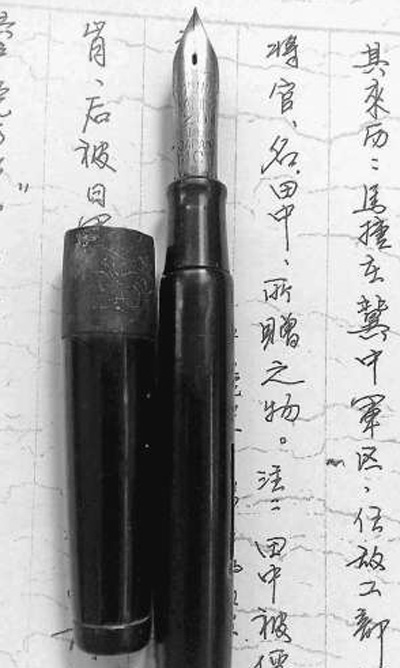 其來历：馬捷在冀中軍区、任敌工部
将官、名田中、所贈之物。注：田中被俘
肖、后被日軍